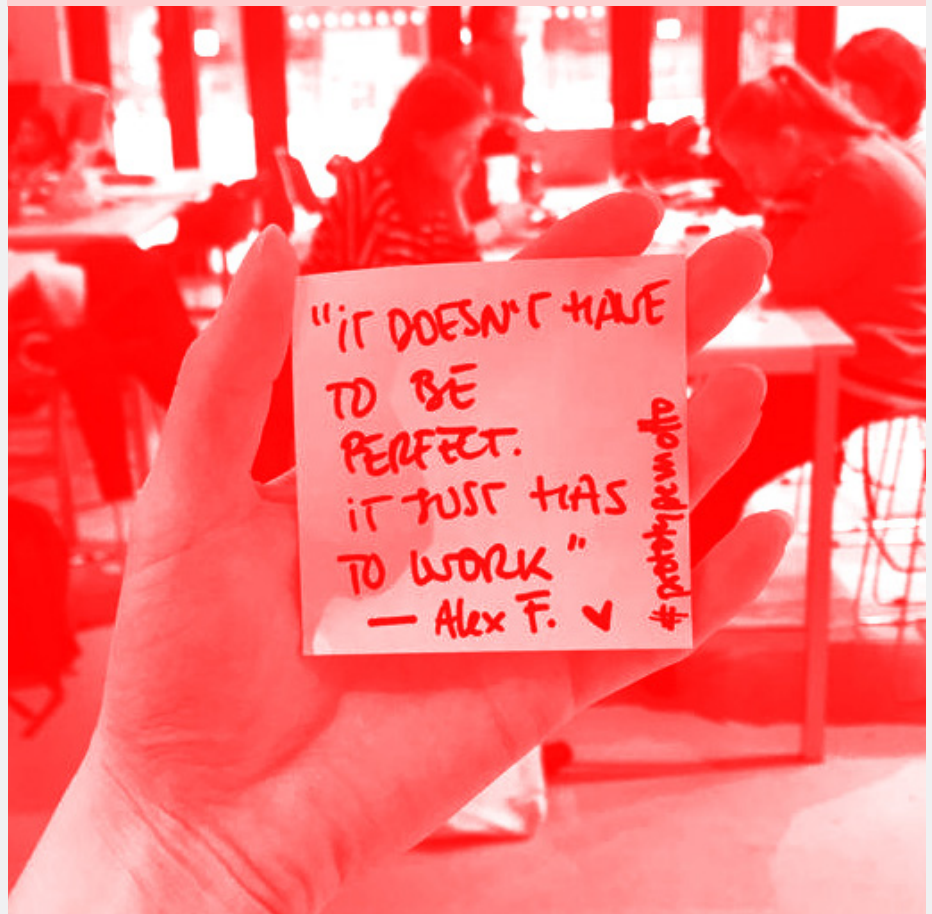 "iT DOESN'T HAVE
TO BE
PERFECT.
iT JUST HAS
TO WORK"
— Alex F. ♥
#prototypemotto